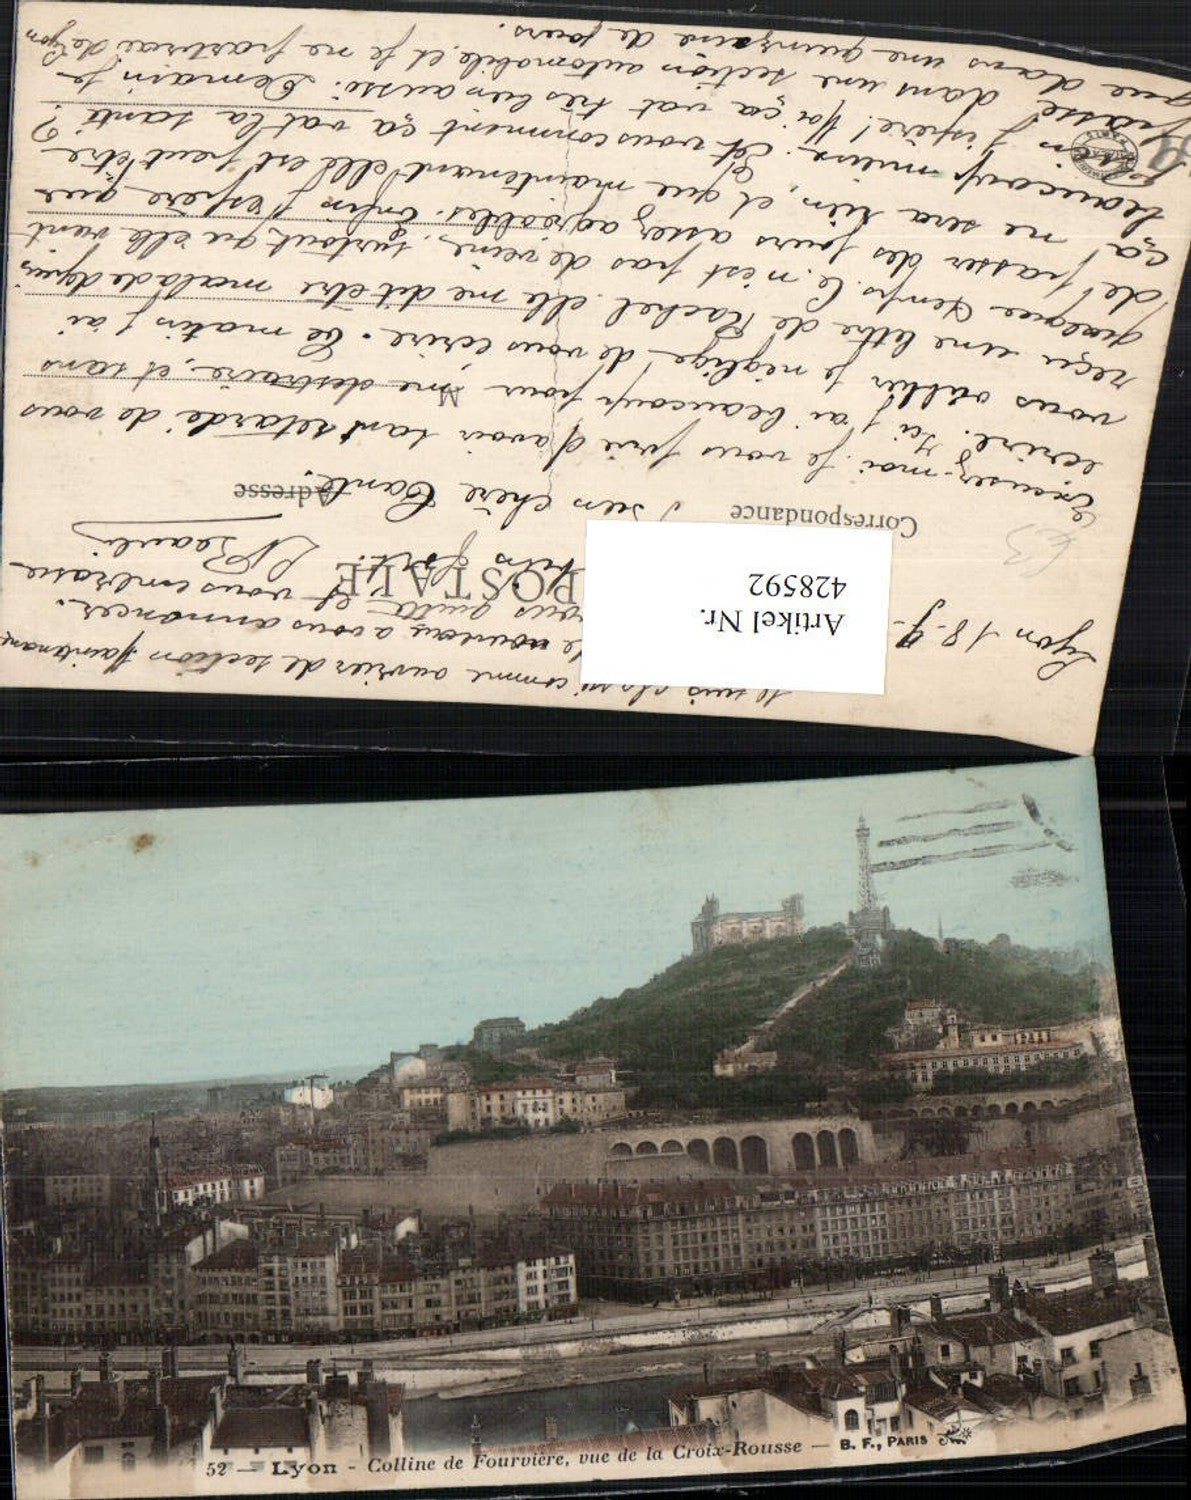 Je suis comme ouvrier de section Maintenant
de nouveau a vous annoncer.
vous quitte et vous embrasse
bien fort.
Lyon 18-9-
Artikel Nr.
428592
POSTALE
Correspondance
Adresse
Bien chère Tante,
Excusez-moi je vous prie d'avoir tant retardé de vous
écrire. Ici j'ai beaucoup pour me destraire, et sans
vous oublier je néglige de vous écrire. Ce matin j'ai
reçu une lettre de Rachel elle me dit être malade depuis
quelques temps. Ce n'est pas de veine, surtout qu'elle vient
de passer des jours assez agréables. Enfin j'espère que
ça ne sera rien, et que maintenant elle est peut être
beaucoup mieux. Et vous comment ça vat la santé?
Bien j'espère! Moi ça vat très bien aussi. Demain je
passe dans une section automobile et je ne partirai de Lyon
que dans une quinzaine de jours.
52 — Lyon - Colline de Fourvière, vue de la Croix-Rousse — B. F., PARIS